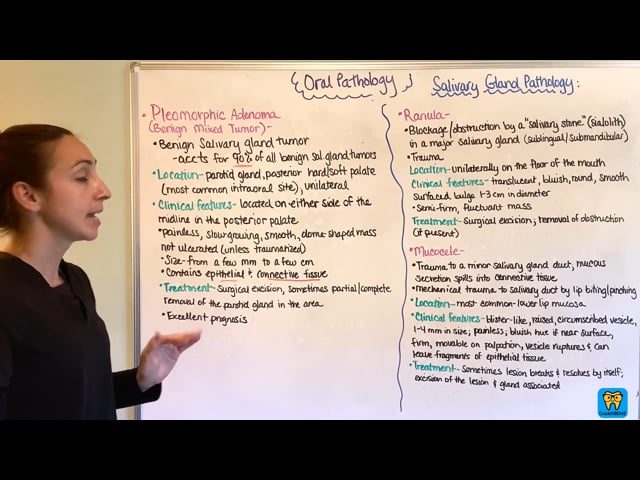 Oral Pathology
Salivary Gland Pathology:
• Pleomorphic Adenoma
(Benign Mixed Tumor)-
• Benign Salivary gland tumor
-accts for 90% of all benign sal. gland tumors
• Location- parotid gland, posterior hard/soft palate
(most common intraoral site), unilateral
• Clinical features- located on either side of the
midline in the posterior palate
• Painless, slow growing, smooth, dome-shaped mass
not ulcerated (unless traumatized)
• Size- from a few mm to a few cm
• Contains epithelial & connective tissue
• Treatment- surgical excision, sometimes partial/complete
removal of the parotid gland in the area
• Excellent prognosis
• Ranula-
• Blockage/obstruction by a "salivary stone" (sialolith)
in a major salivary gland (sublingual/submandibular)
• Trauma
Location- unilaterally on the floor of the mouth
Clinical features- translucent, bluish, round, smooth
surfaced bulge 1-3 cm in diameter
• Semi-firm, fluctuant mass
Treatment- Surgical excision; removal of obstruction
(if present)
• Mucocele-
• Trauma to a minor salivary gland duct, mucous
secretion spills into connective tissue
• Mechanical trauma to salivary duct by lip biting/pinching
• Location- most common- lower lip mucosa
• Clinical features- blister-like, raised, circumscribed vesicle,
1-4 mm in size; painless; bluish hue if near surface,
firm, movable on palpation, vesicle ruptures & can
leave fragments of epithelial tissue
• Treatment- Sometimes lesion breaks & resolves by itself;
excision of the lesion & gland associated